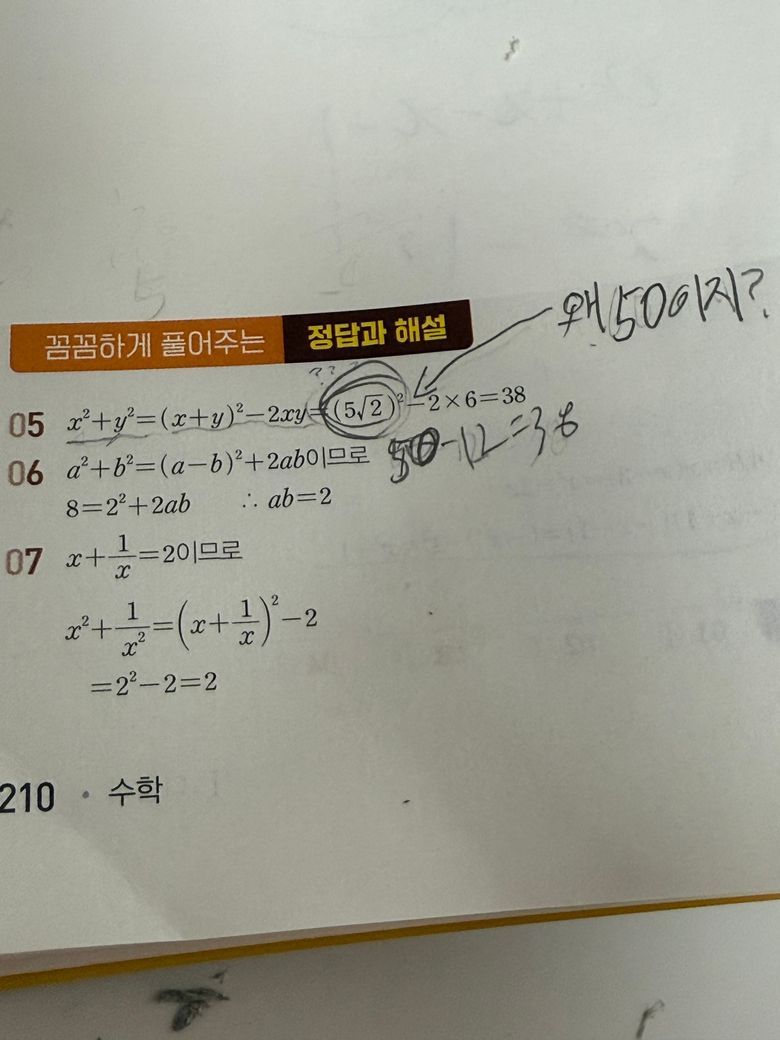 왜 50이지?
꼼꼼하게 풀어주는 정답과 해설
??
05 x²+y²=(x+y)²-2xy=(5√2)²-2×6=38
50-12=38
06 a²+b²=(a-b)²+2ab이므로
8=2²+2ab ∴ ab=2
07 x+1/x=2이므로
x²+1/x²=(x+1/x)²-2
=2²-2=2
210 • 수학